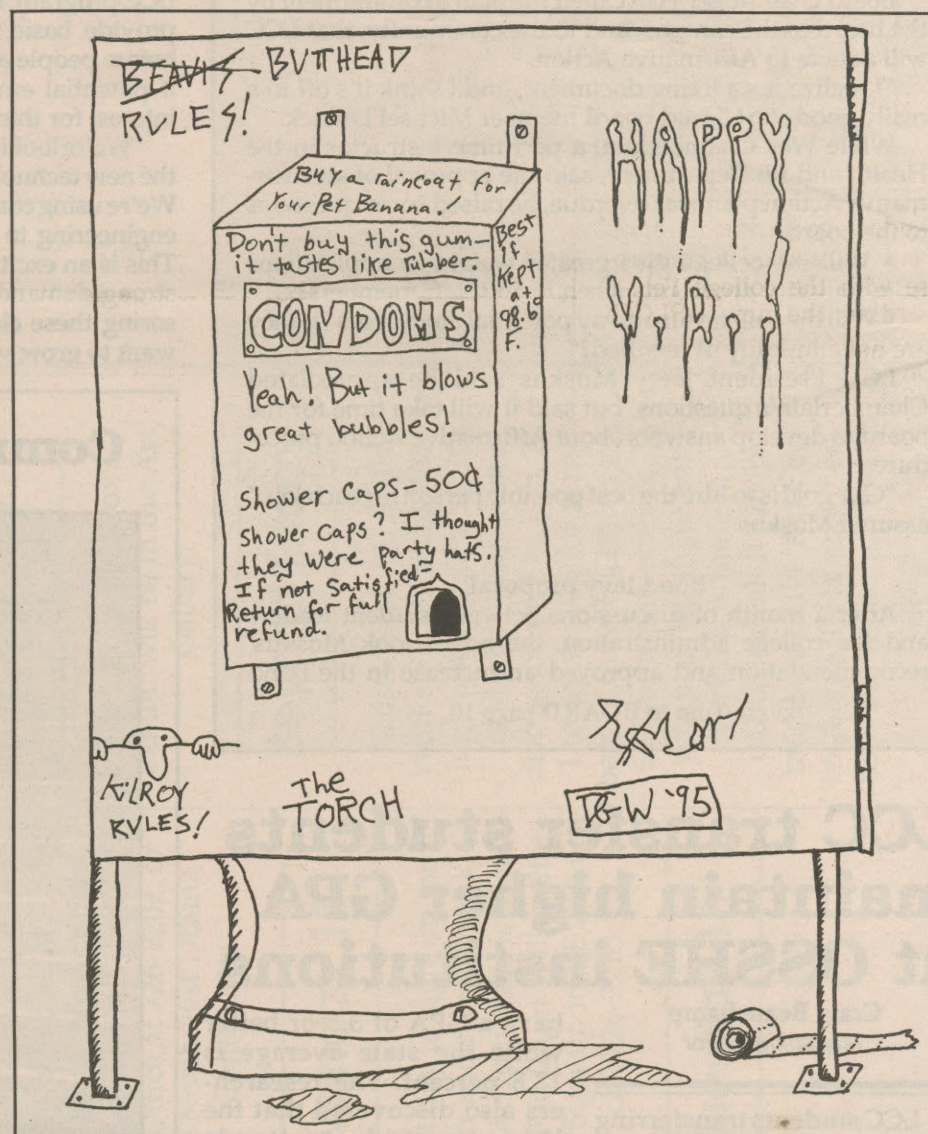 BEAVIS BUTTHEAD
RULES!
Buy a raincoat for
Your Pet Banana!
Don't buy this gum-
it tastes like rubber.
CONDOMS
Yeah! But it blows
great bubbles!
shower caps - 50¢
shower caps? I thought
they were party hats.
If not satisfied-
Return for full
refund.
Best
if
Kept
at
98.6
F.
HAPPY
V Day!
KILROY
RULES!
The
TORCH
DGW '95